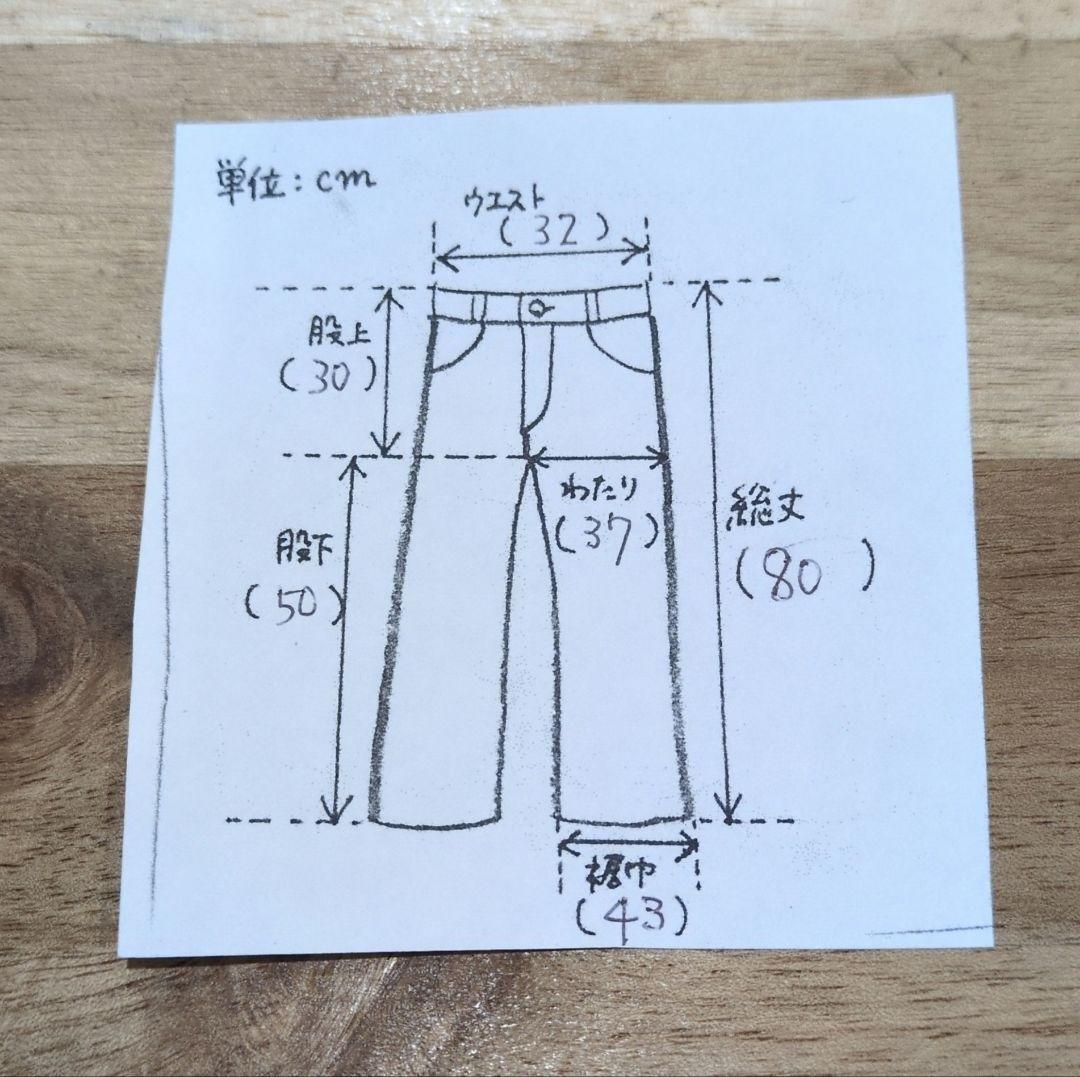 単位:cm
ウエスト
(32)
股上
(30)
わたり
(37)
股下
(50)
総丈
(80)
裾巾
(43)